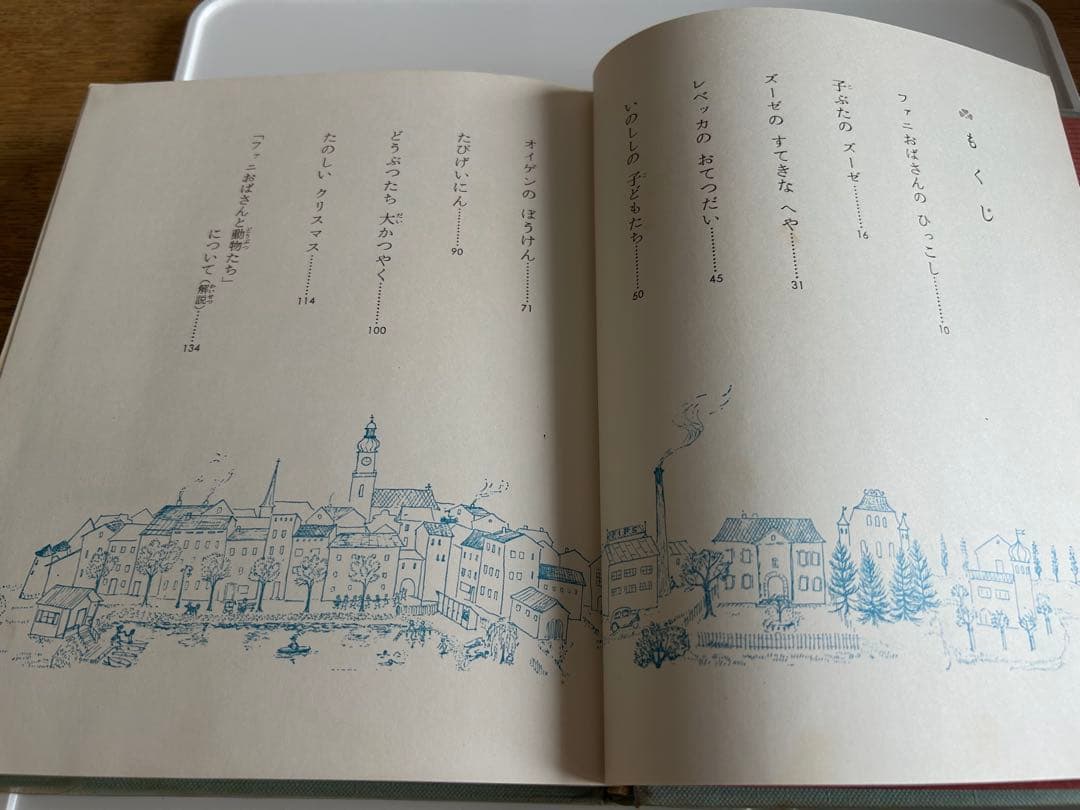 もくじ
ファニおばさんの ひっこし………10
子ぶたの ズーゼ………16
ズーゼの すてきな へや………31
レベッカの おてつだい………45
いのししの 子どもたち………60
オイゲンの ぼうけん………71
たびげいにん………90
どうぶつたち 大かつやく………100
たのしい クリスマス………114
「ファニおばさんと動物たち」
について(解説)………134